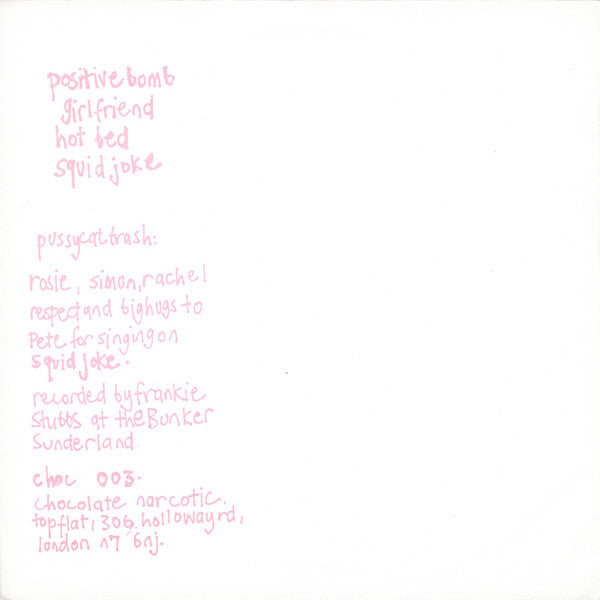 positive bomb
girlfriend
hot bed
squid joke
pussycat trash:
rosie, simon, rachel
respect and big hugs to
Pete for singing on
squid joke.
recorded by frankie
Stubbs at the Bunker
Sunderland.
choc 003.
chocolate narcotic.
top flat, 306. holloway rd,
london n7 6nj.